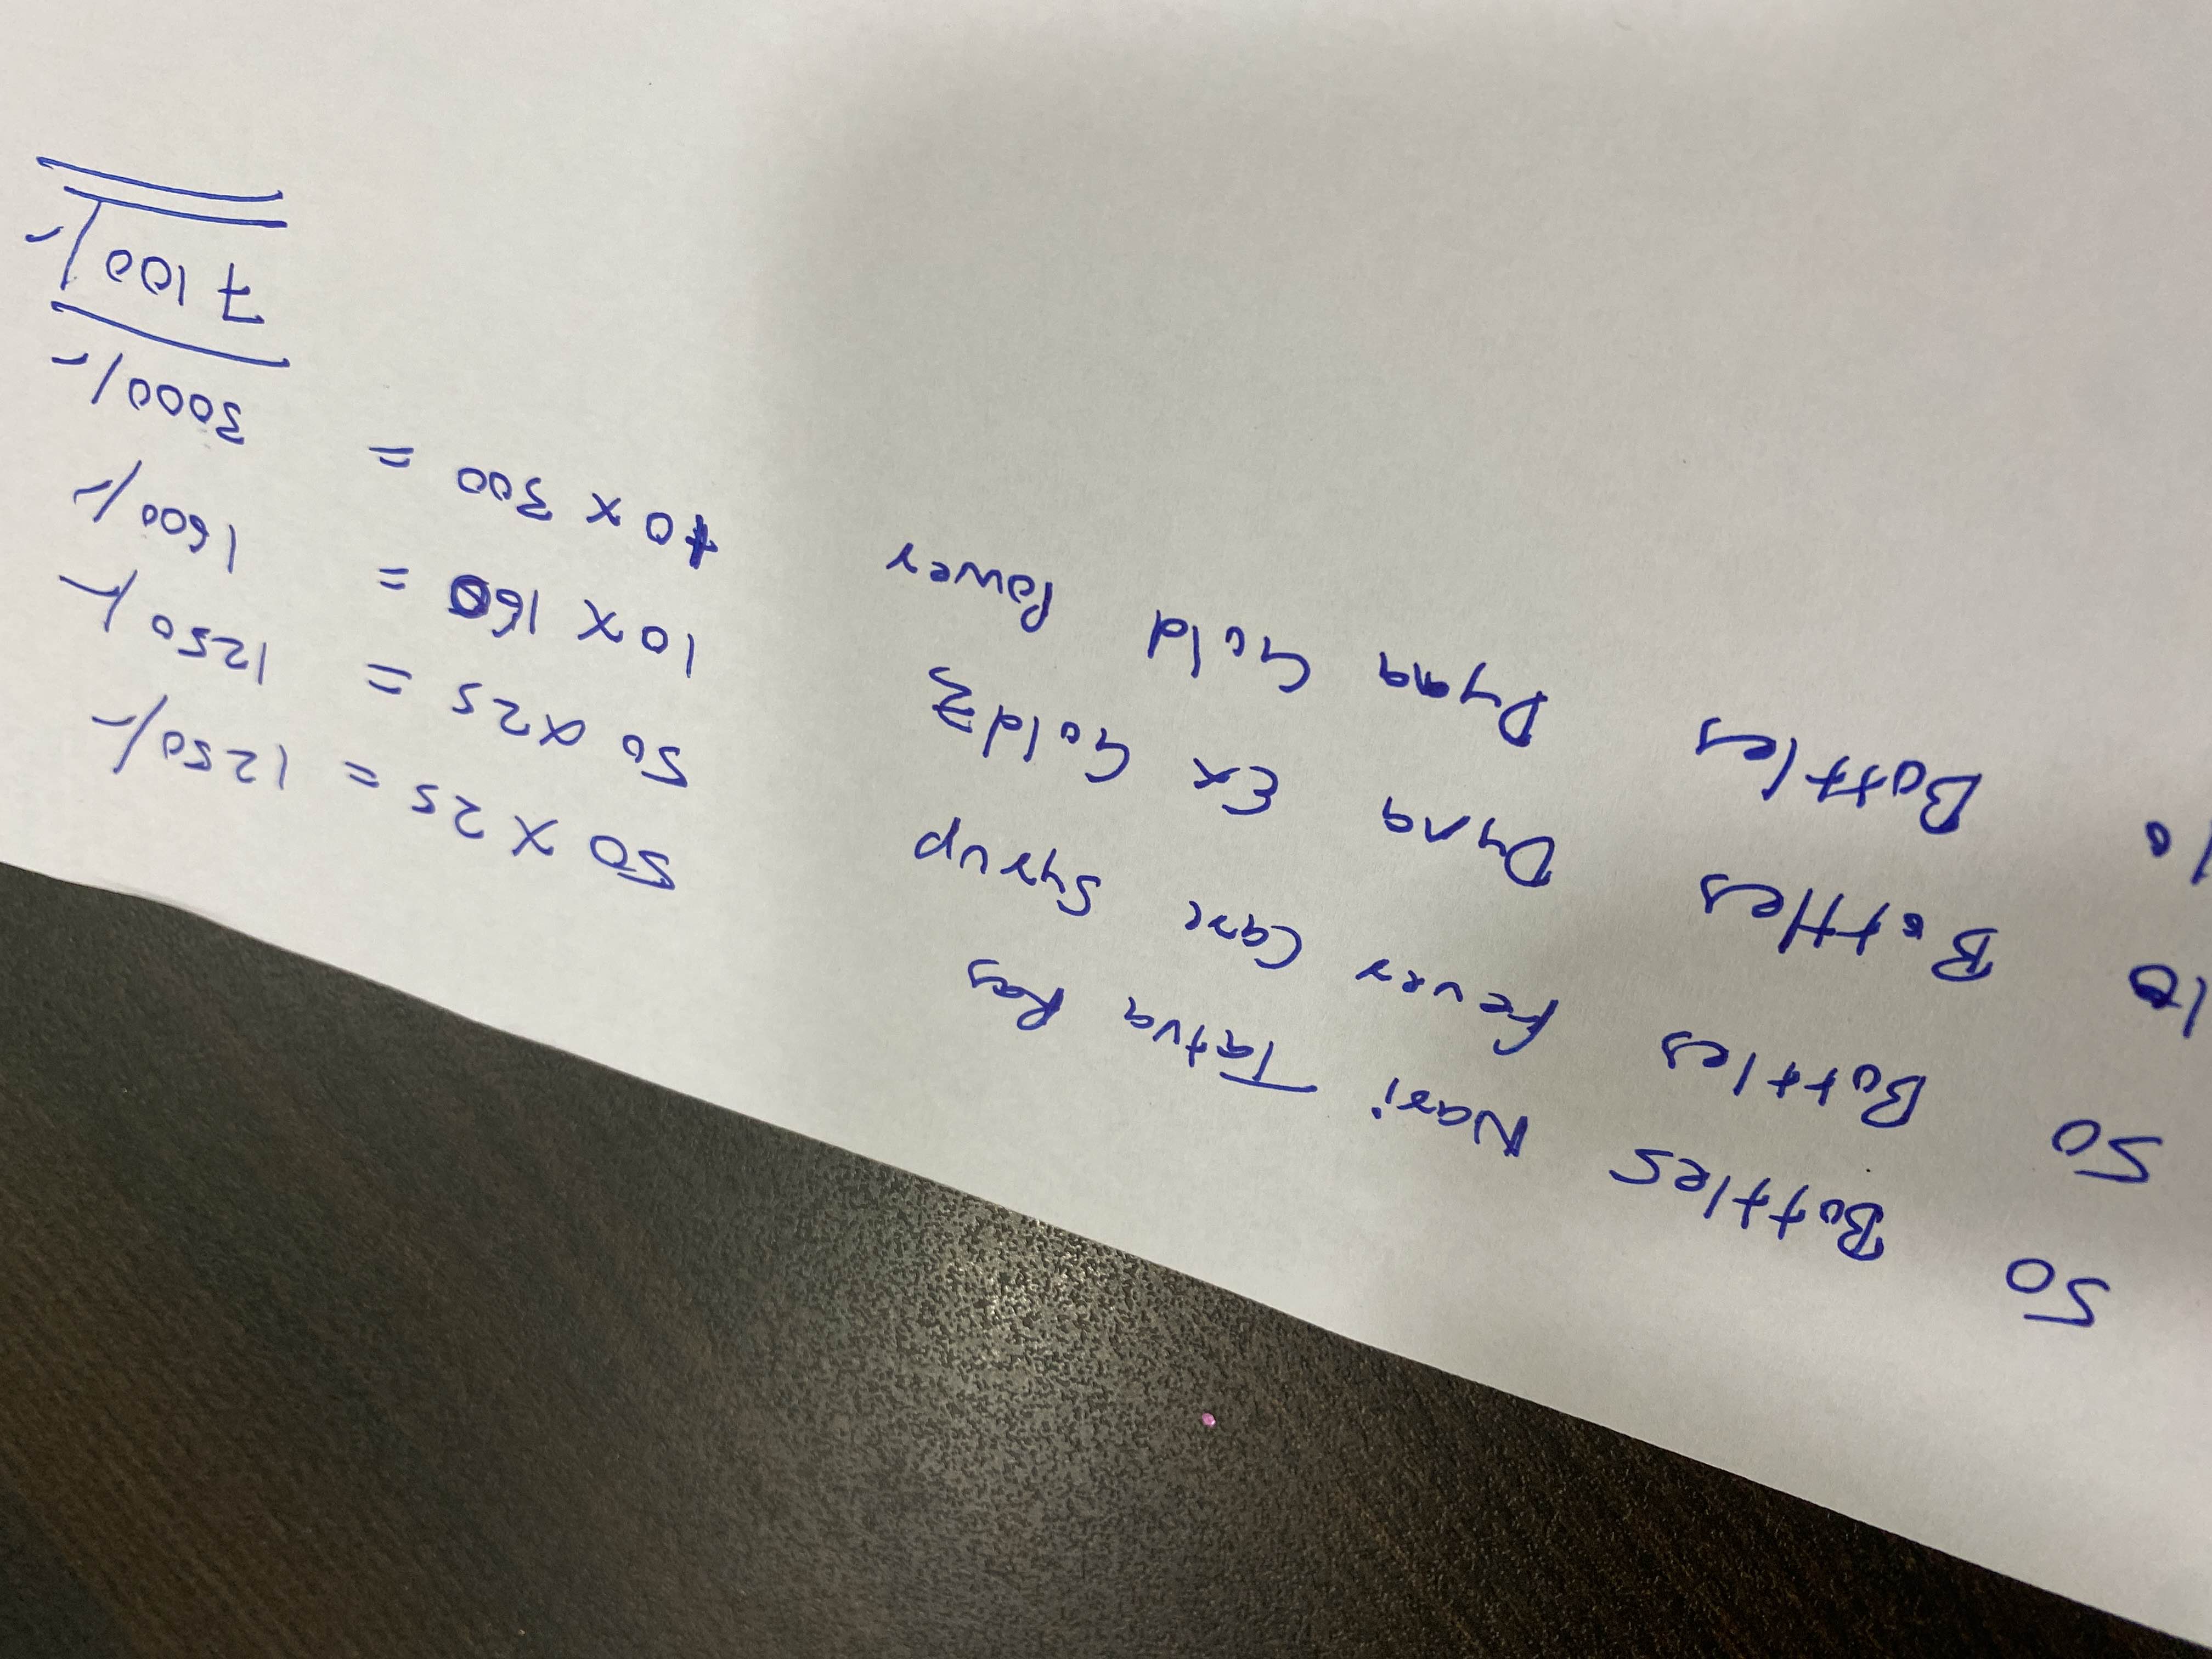 50 Bottles Nari Tatva Ras 50 x 25 = 1250/-
50 Bottles Fever Care Syrup 50 x 25 = 1250/-
10 Bottles Dyna Ex Gold 10 x 160 = 1600/-
10 Bottles Dyna Gold Power 10 x 300 = 3000/-
7100/-